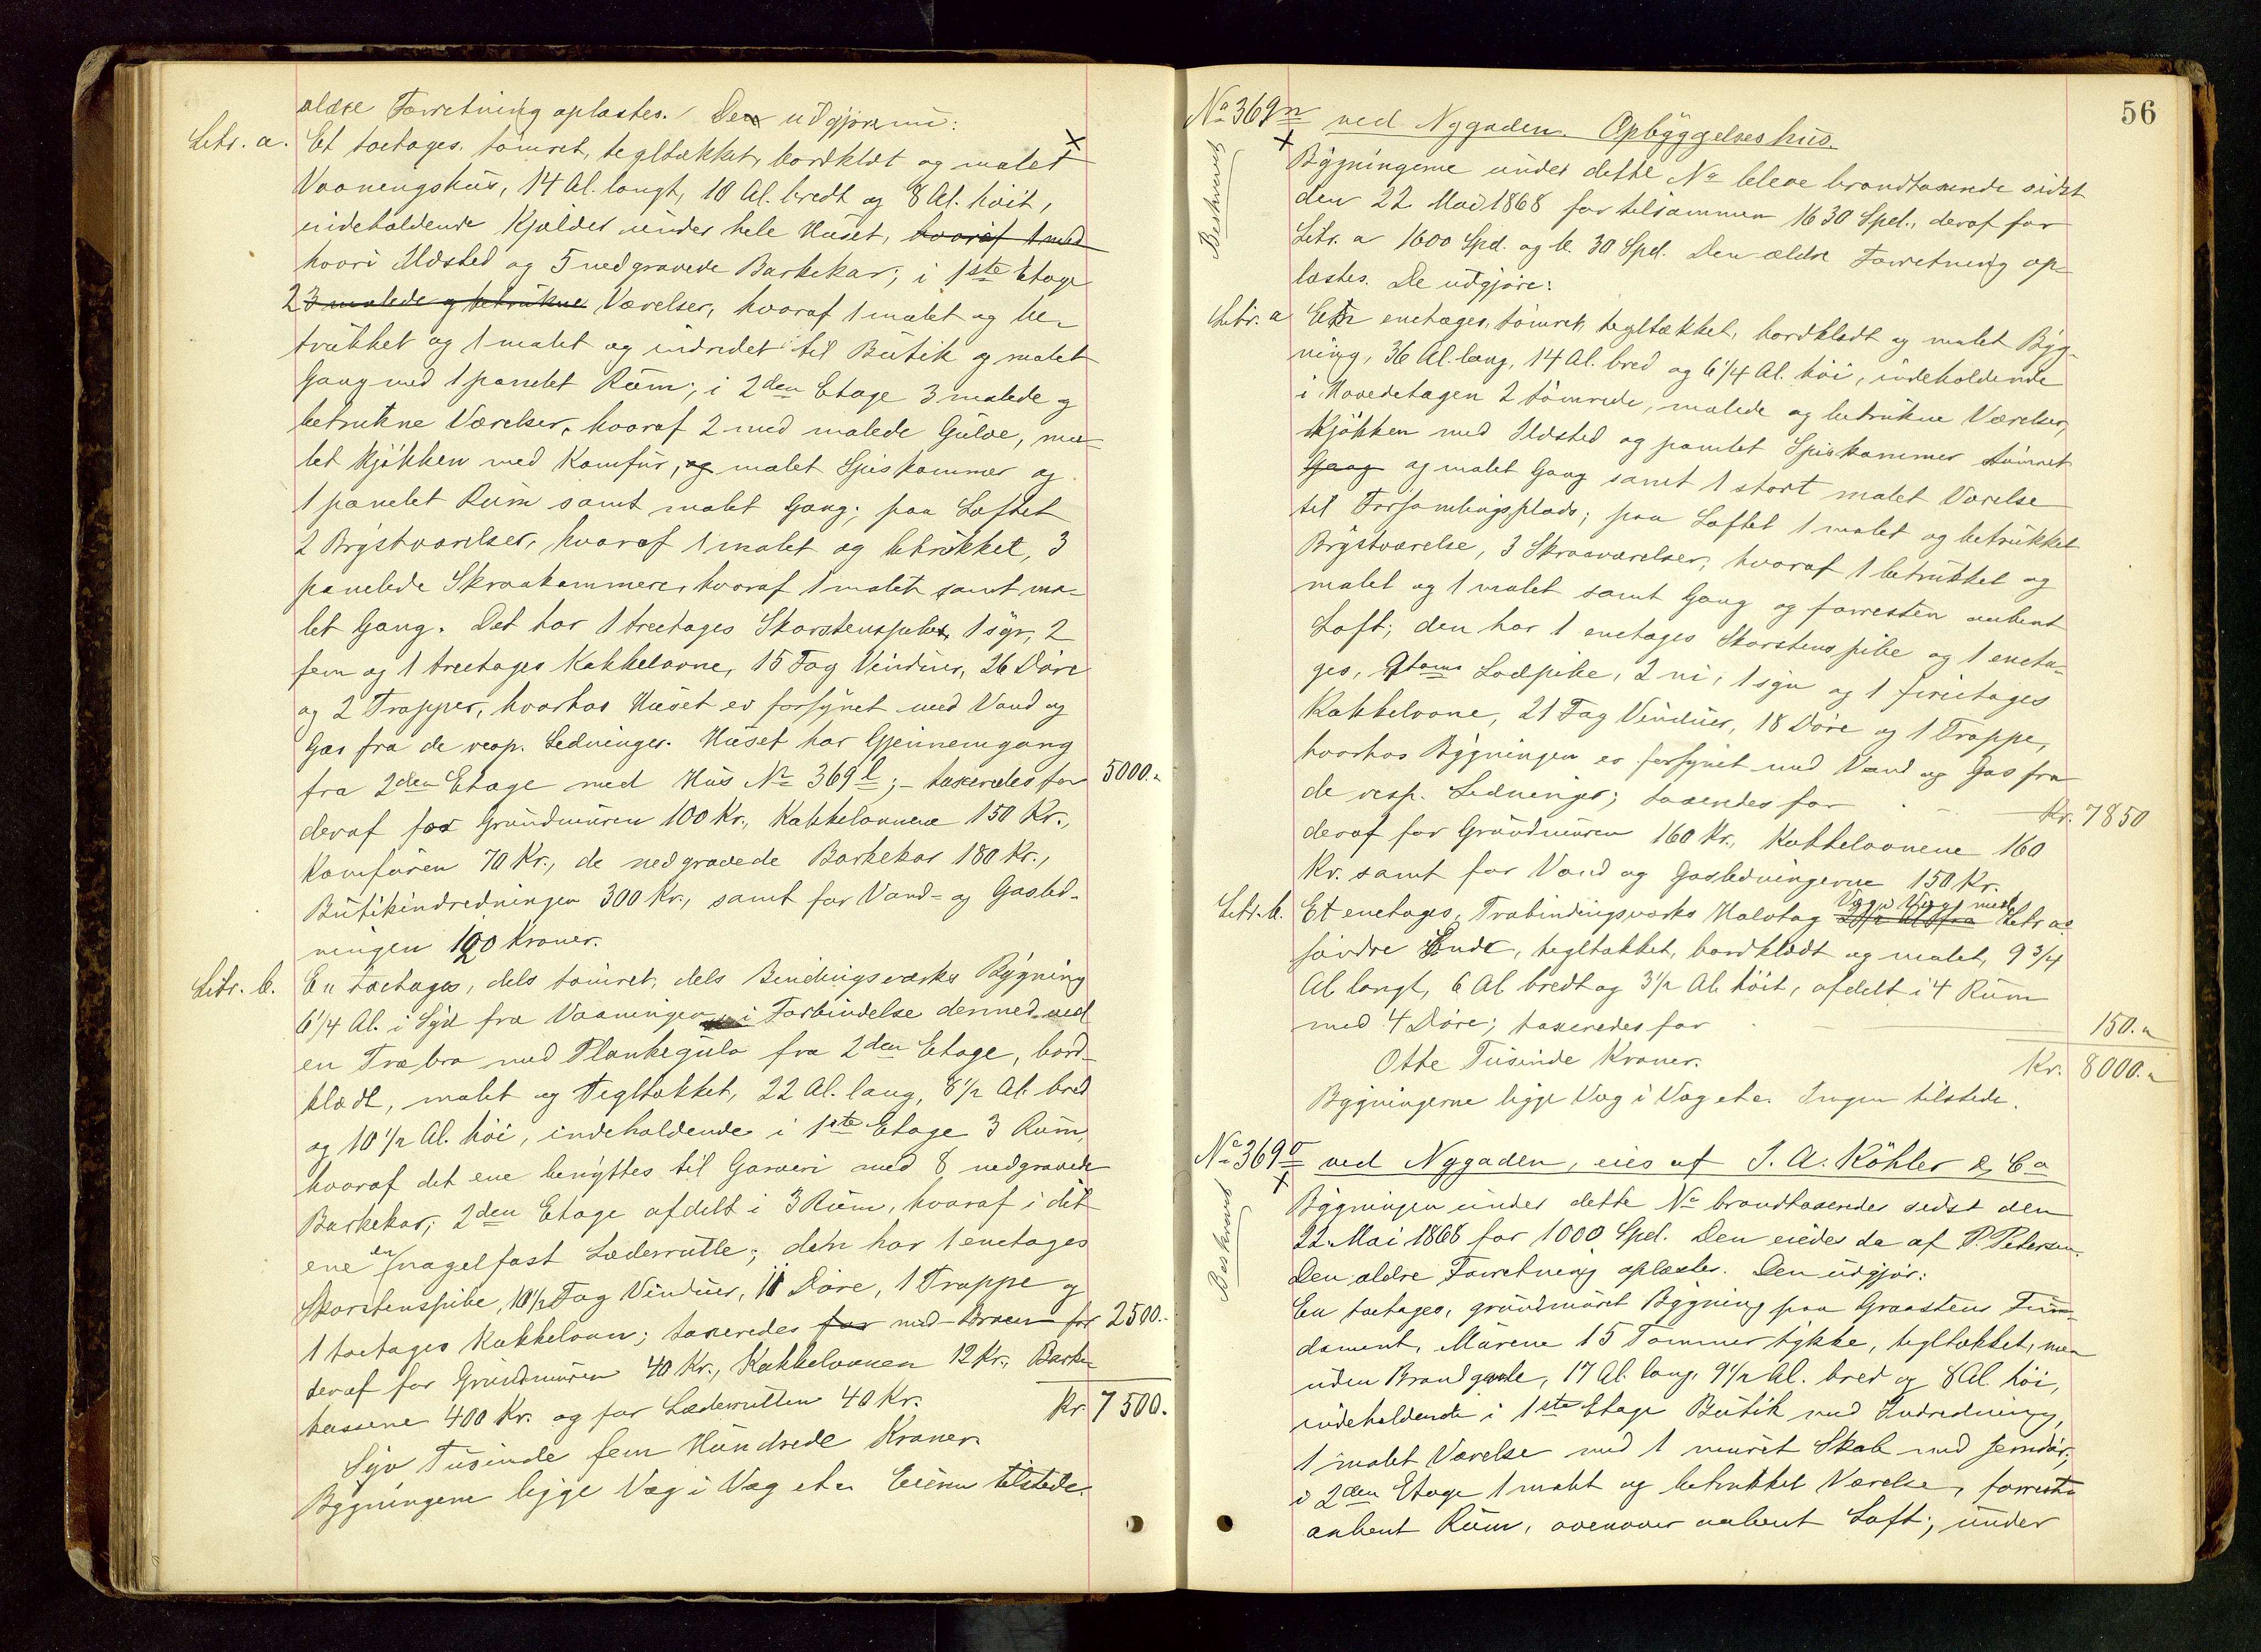 ældre Forretning oplæstes. Den udgjør nu:
Litr. a. Et toetages, tømret, tegltækket, bordklædt og malet
Vaaningshus, 14 Al. langt, 10 Al. bredt og 8 Al. høit,
indeholdende Kjælder under hele Huset, hvoraf 1 med
hvori Ildsted og 5 nedgravede Barkekar; i 1ste Etage
2 3 malede og betrukne Værelser, hvoraf 1 malet og be-
trukket og 1 malet og indredet til Butik og malet
Gang med 1 panelet Rum; i 2den Etage 3 malede og
betrukne Værelser, hvoraf 2 med malede Gulve, ma-
let Kjøkken med Komfur, og malet Spiskammer og
1 panelet Rum samt malet Gang; paa Loftet
2 Brystværelser, hvoraf 1 malet og betrukket, 3
panelede Skraakammere, hvoraf 1 malet samt ma-
let Gang. Det har 1 treetages Skorstenspibe, 1 syv, 2
fem og 1 treetages Kakkelovne, 15 Fag Vinduer, 26 Døre
og 2 Trapper, hvorhos Huset er forsynet med Vand og
Gas fra de resp. Ledninger. Huset har Gjennemgang
fra 2den Etage med Hus No 369 l; - taxeredes for 5000.-
deraf for Grundmuren 100 Kr., Kakkelovnene 150 Kr.,
Komfuren 70 Kr., de nedgravede Barkekar 180 Kr.,
Butikindredningen 300 Kr., samt for Vand- og Gasled-
ningen 120 Kroner.
Litr. b. En toetages, dels tømret, dels Bindingsværks Bygning
6 1/4 Al. i Syd fra Vaaningen, i Forbindelse dermed ved
en Træbro med Plankegulv fra 2den Etage, bord-
klædt, malet og tegltækket, 22 Al. lang, 8 1/2 Al. bred
og 10 1/2 Al. høi, indeholdende i 1ste Etage 3 Rum,
hvoraf det ene benyttes til Garveri med 8 nedgravede
Barkekar; 2den Etage afdelt i 3 Rum, hvoraf i det
ene en nagelfast Læderrulle; den har 1 enetages
Skorstenspibe, 10 1/2 Fag Vinduer, 11 Døre, 1 Trappe og
1 toetages Kakkelovn; taxeredes for med Broen for 2500.-
deraf for Grundmuren 40 Kr., Kakkelovnen 12 Kr., Barke-
kassene 400 Kr. og for Læderrullen 40 Kr. Kr. 7500.
Syv Tusinde fem Hundrede Kroner.
Bygningerne ligge Væg i Væg etc. Eieren tilstede.
56
No 369 n ved Nygaden. Opbyggelseshus.
Beskrevet
Bygningerne under dette No bleve brandtaxerede sidst
den 22 Mai 1868 for tilsammen 1630 Spd., deraf for
Litr. a 1600 Spd. og b. 30 Spd. Den ældre Forretning op-
læstes. De udgjøre:
Litr. a En enetages, tømret, tegltækket, bordklædt og malet Byg-
ning, 36 Al. lang, 14 Al. bred og 6 1/4 Al. høi, indeholdende
i Hovedetagen 2 tømrede, malede og betrukne Værelser,
Kjøkken med Ildsted og panelet Spiskammer tømret
Gang og malet Gang samt 1 stort malet Værelse
til Forsamlingsplads; paa Loftet 1 malet og betrukket
Brystværelse, 3 Skraaværelser, hvoraf 1 betrukket og
malet og 1 malet samt Gang og forresten aabent
Loft; den har 1 enetages Skorstenspibe og 1 eneta-
ges, 9toms Lodpibe, 2 ni, 1 syv og 1 fireetages
Kakkelovne, 21 Fag Vinduer, 18 Døre og 1 Trappe,
hvorhos Bygningen er forsynet med Vand og Gas fra
de resp. Ledninger; taxeredes for Kr. 7850
deraf for Grundmuren 160 Kr., Kakkelovnene 160
Kr. samt for Vand og Gasledningerne 150 Kr.
Litr. b. Et enetages, Træbindingsværks Halvtag Væg i Væg med Litr a's
søndre Ende, tegltækket, bordklædt og malet, 9 3/4
Al. langt, 6 Al. bredt og 3 1/2 Al. høit, afdelt i 4 Rum
med 4 Døre; taxeredes for 150.-
Otte Tusinde Kroner. Kr. 8000.-
Bygningerne ligge Væg i Væg etc. Ingen tilstede.
No 369 o ved Nygaden, eies af J. A. Köhler & Co
Beskrevet
Bygningen under dette No brandtaxeredes sidst den
22. Mai 1868 for 1000 Spd. Den eiedes da af P. Petersen.
Den ældre Forretning oplæstes. Den udgjør:
En toetages, grundmuret Bygning paa Graastens Fun-
dament, Murene 15 Tommer tykke, tegltækket, men
uden Brandgavle, 17 Al. lang, 9 1/2 Al. bred og 8 Al. høi,
indeholdende i 1ste Etage Butik med Indredning,
1 malet Værelse med 1 muret Skab med Jerndør;
i 2den Etage 1 malet og betrukket Værelse, forresten
aabent Rum, ovenover aabent Loft; under